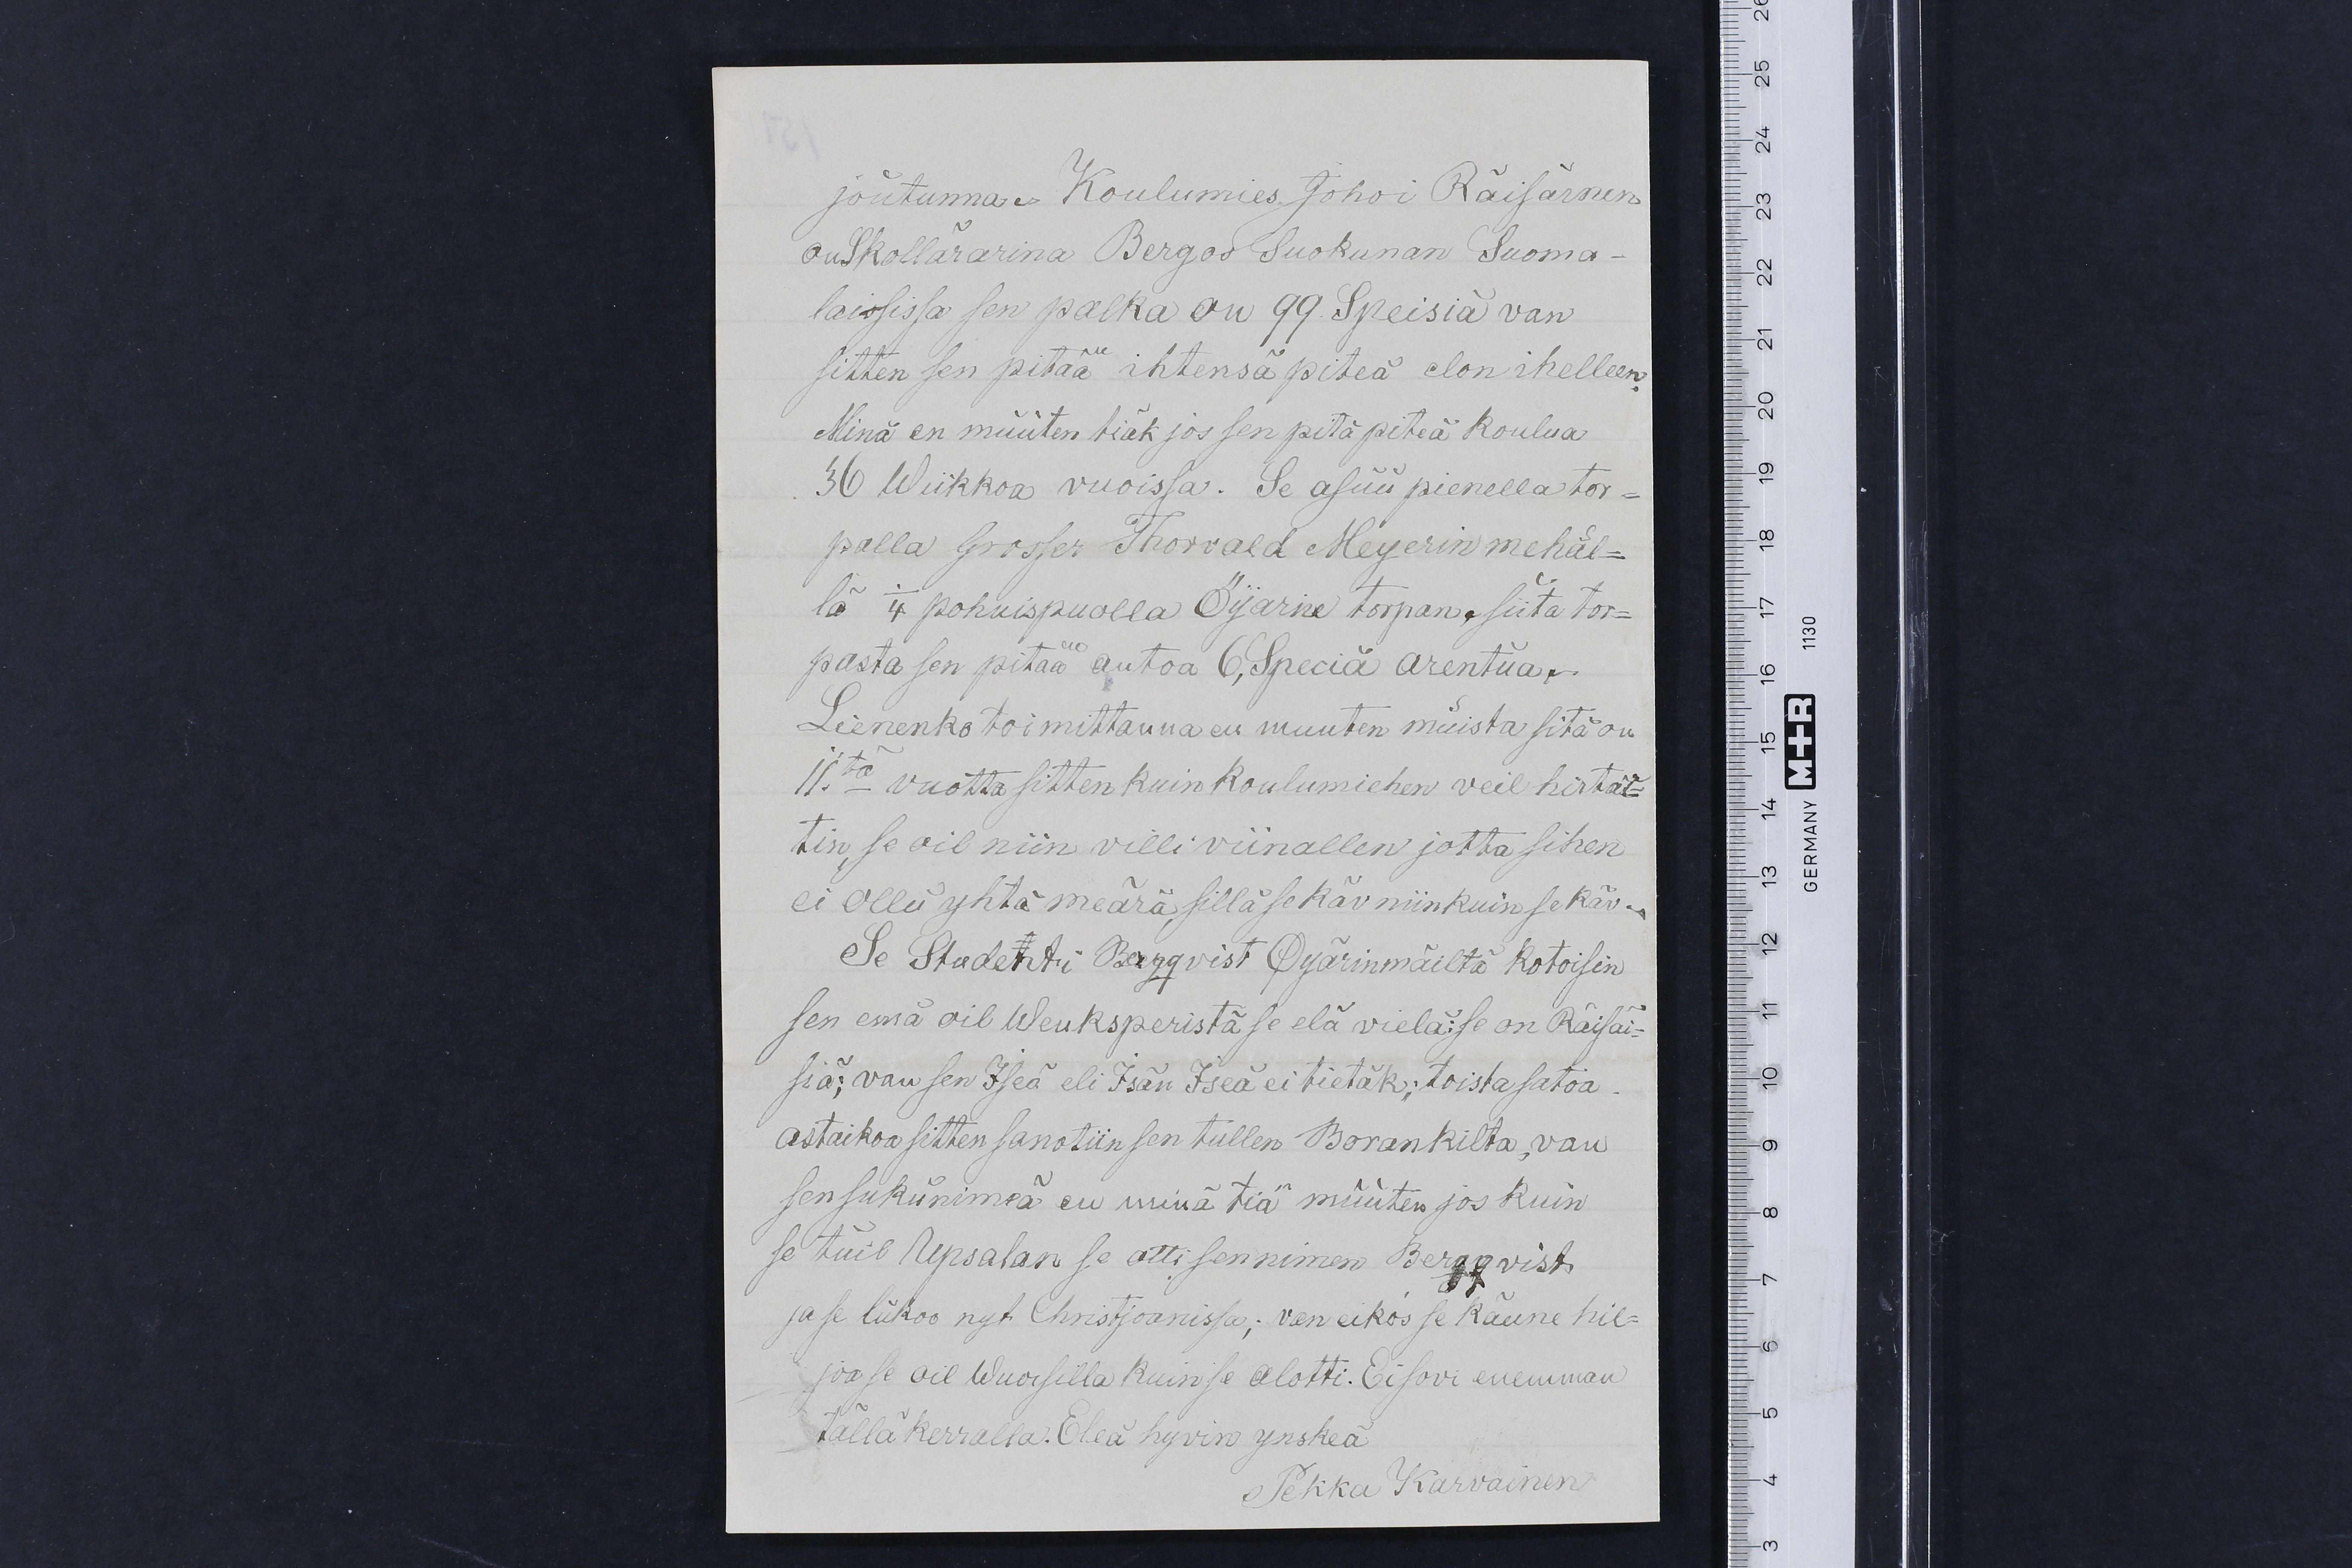 joutunna. Koulumies Johoi Räisärnen
on Skollärarina Bergos Suokunan Suoma-
laisissa sen palka on 99 Speisiä van
sitten sen pitää ihtensä piteä elon ihelleen.
Minä en muuten tiäk jos sen pitä piteä koulua
36 Wiikkoa vuoissa. Se asuu pienella tor=
palla Grosser Thorvald Meyerin mehäl=
lä ¼ pohuispuolla Öijarne torpan, siita tor=
pasta sen pitää autoa 6, Speciä arentua.
Lienenko toimittanna en muuten muista sitä on
11.ta vuotta sitten kuin koulumiehen veil hirtät=
tin, se oil niin villi viinallen jotta sihen
ei ollu yhtä meärä, sillä se käv niinkuin se käv.
Se Studenti Bergqvist Øyärinmäiltä kotoisin
sen emä oil Weuksperistä se elä vielä: se on Räisäi=
siä; van sen Iseä eli Isän Iseä ei tietäk; toista satoa
astaikoa sitten sanotiin sen tullen Borankilta, van
sen sukunimeä en minä tiä muuten jos kuin
se tuil Upsalan se otti sen nimen Bergqvist
ja se lukoo nyt Christjoanissa; van eikös se käune hil=
joa se oil Wuosilla kuin se alotti. Ei sovi enemman
tällä kerralla. Eleä hyvin ynskeä
Pekka Karvainen
26
25
24
23
22
21
20
19
18
17
16
15
14
13
12
11
10
9
8
7
6
5
4
3
GERMANY M+R 1130